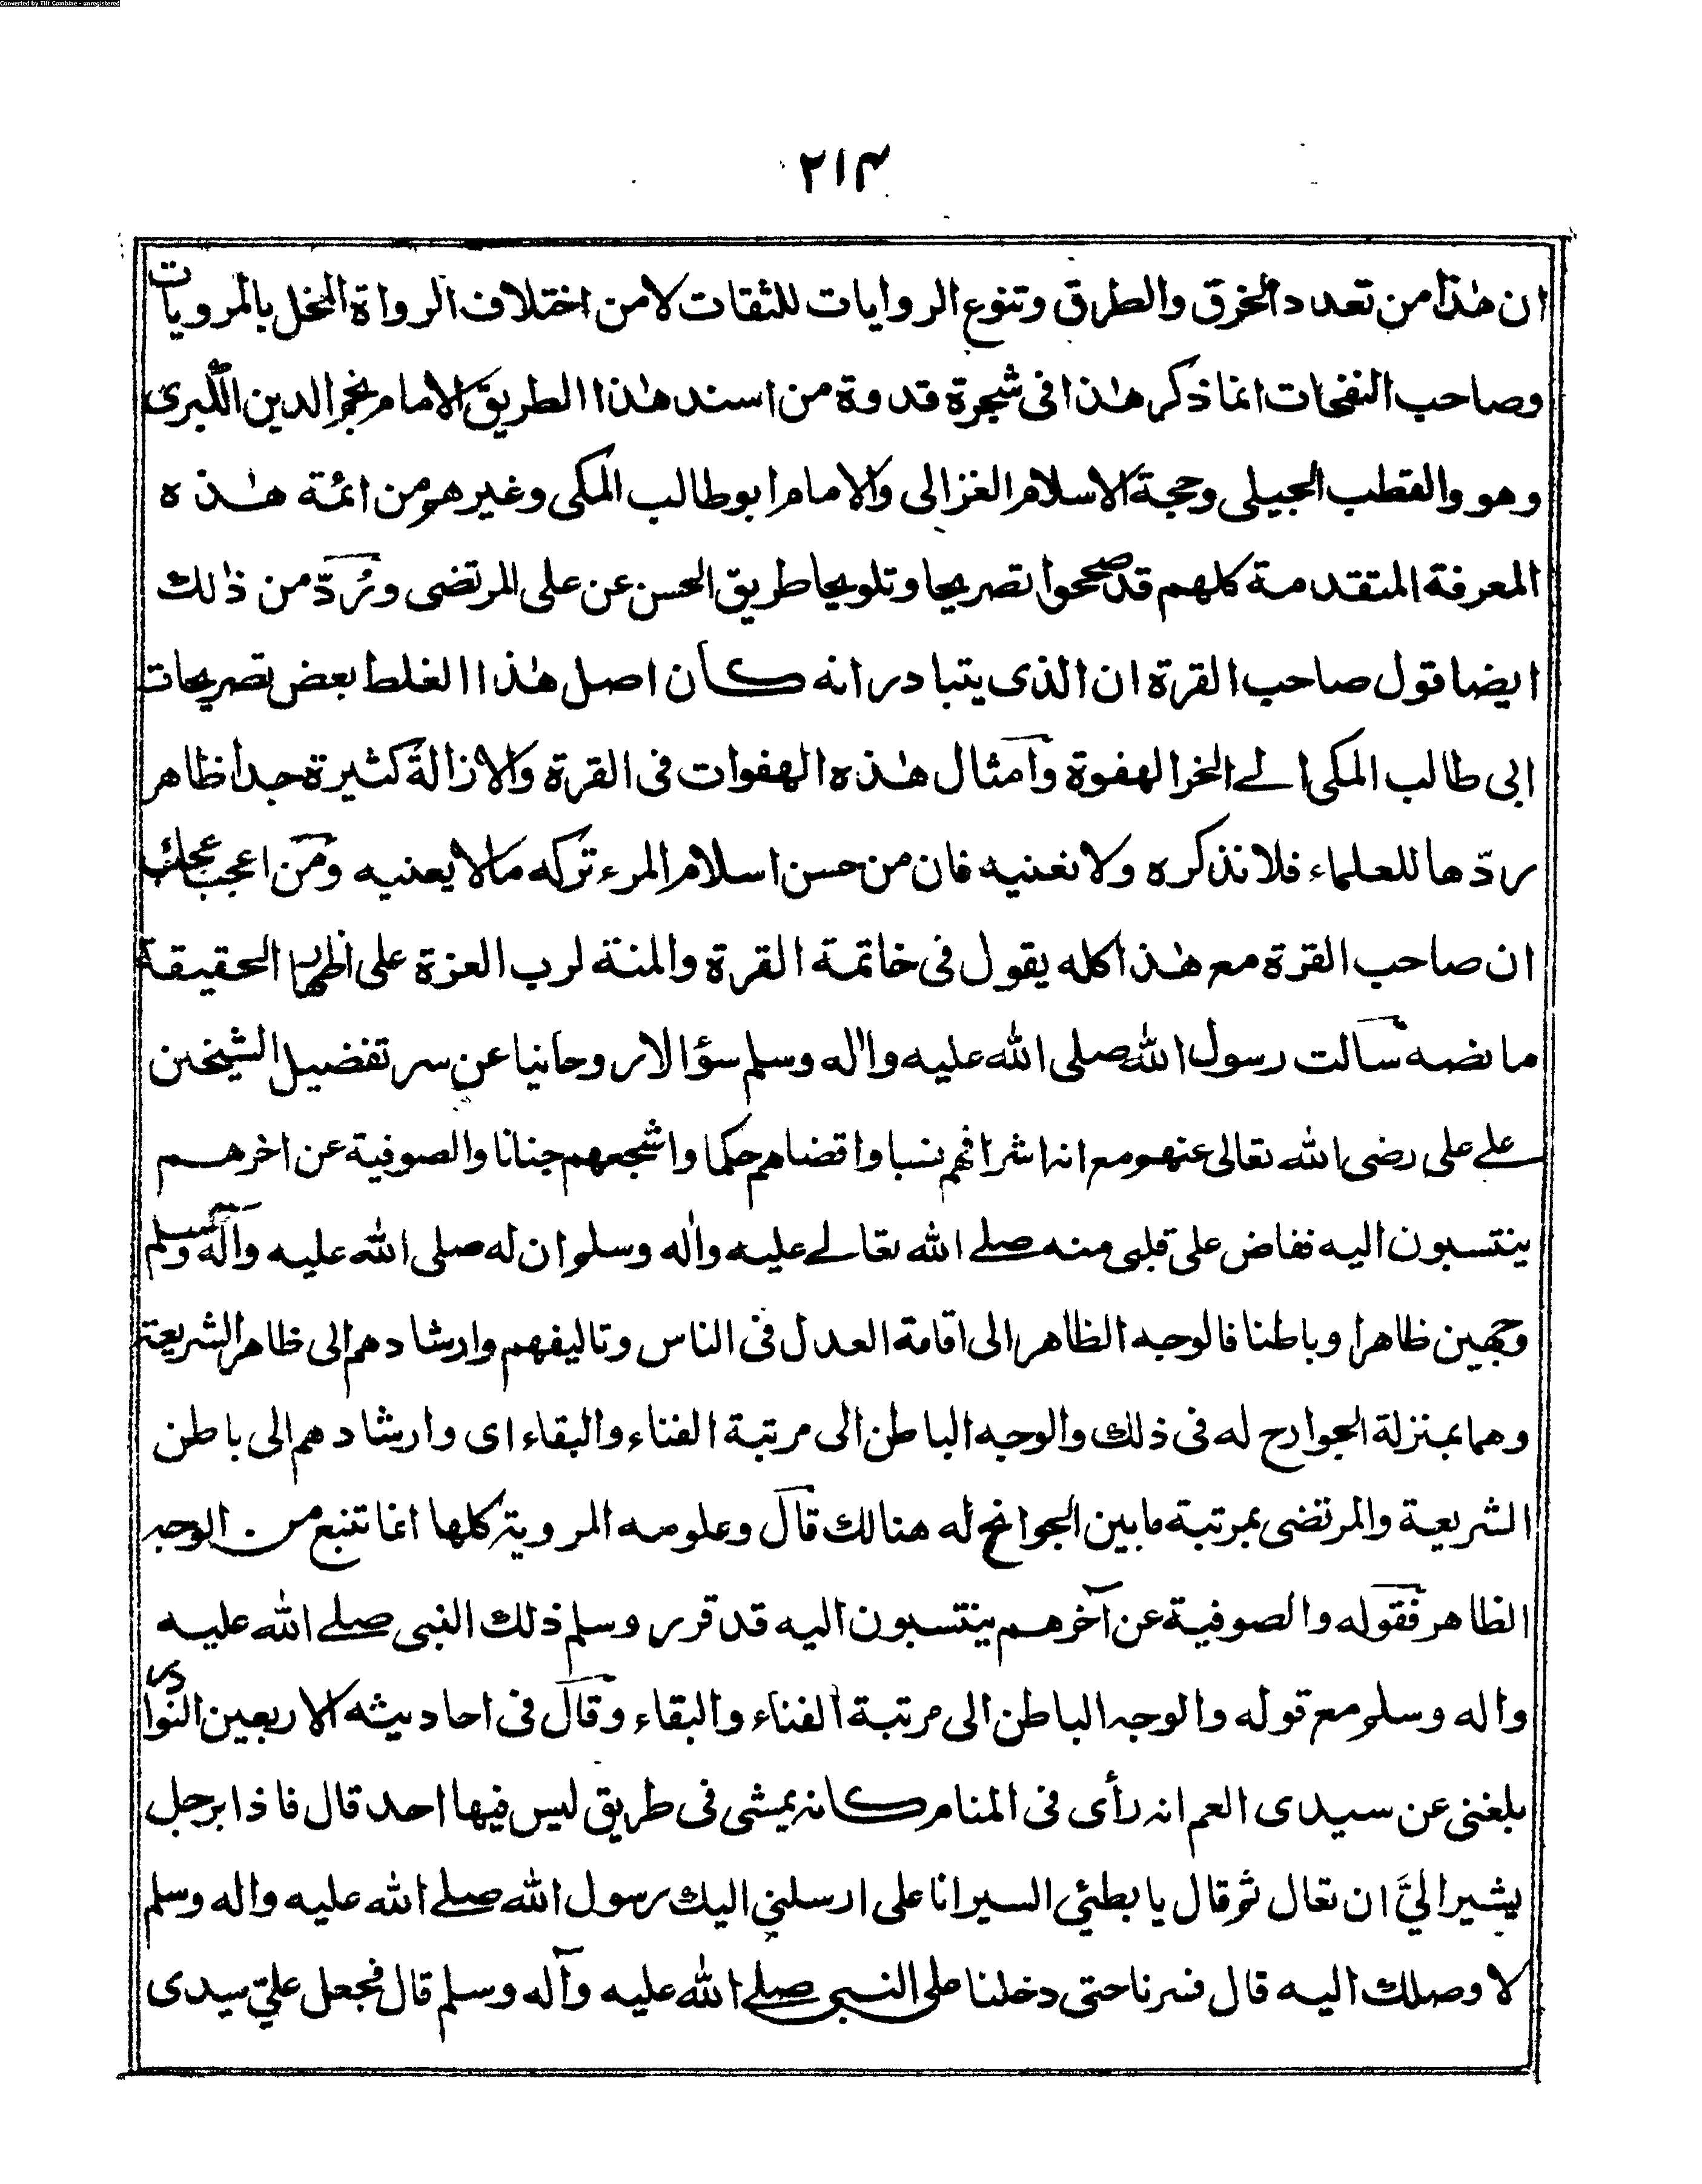 Converted by Tiff Combine - unregistered
٢١۴
ان هٰذا من تعدد الخرق والطرق وتنوع الروايات للثقات لا من اختلاف الرواة المخل بالمرويات
وصاحب النفحات انما ذكر هٰذا فى شجرة قدوة من اسند هٰذا الطريق الامام نجم الدين الكبرى
وهو والقطب الجيلى وحجة الاسلام الغزالى والامام ابو طالب المكى وغيرهم من ائمة هٰذه
المعرفة المتقدمة كلهم قد صححوا تصريحا وتلويحا طريق الحسن عن على المرتضى وتُردّ من ذٰلك
ايضا قول صاحب القرة ان الذى يتبادر انه كان اصل هٰذا الغلط بعض تصريحات
ابى طالب المكى الے اخر الهفوة وامثال هٰذه الهفوات فى القرة والازالة كثيرة جدا ظاهر
ردّها للعلماء فلا نذكره ولا نعنيه فان من حسن اسلام المرء تركه مالا يعنيه ومن اعجب عجائب
ان صاحب القرة مع هٰذا كله يقول فى خاتمة القرة والمنة لرب العزة على اظهار الحقيقة
ما نصه سالت رسول الله صلى الله عليه واٰله وسلم سؤالا روحانيا عن سر تفضيل الشيخين
علے على رضى الله تعالى عنهم مع انه اشرافهم نسبا واقضاهم حكما واشجعهم جنانا والصوفية عن اخرهم
ينتسبون اليه ففاض على قلبى منه صلے الله تعالے عليه واٰله وسلم ان له صلى الله عليه واٰله وسلم
وجهين ظاهرا وباطنا فالوجه الظاهر الى اقامة العدل فى الناس وتاليفهم وارشادهم الى ظاهر الشريعة
وهما بمنزلة الجوارح له فى ذلك والوجه الباطن الى مرتبة الفناء والبقاء اى وارشادهم الى باطن
الشريعة والمرتضى بمرتبة ما بين الجوانح له هنالك قال وعلومه المروية كلها انما تنبع من الوجه
الظاهر فقوله والصوفية عن آخرهم ينتسبون اليه قد قرر وسلم ذلك النبى صلے الله عليه
واله وسلم مع قوله والوجه الباطن الى مرتبة الفناء والبقاء وقال فى احاديثه الاربعين النوادر
بلغنى عن سيدى العم انه رأى فى المنام كانه يمشى فى طريق ليس فيها احد قال فاذا برجل
يشير اليَّ ان تعال ثم قال يا بطئي السير انا على ارسلنى اليك رسول الله صلے الله عليه واله وسلم
لاوصلك اليه قال فسرنا حتى دخلنا على النبى صلے الله عليه وآله وسلم قال فجعل علىّ سيدى